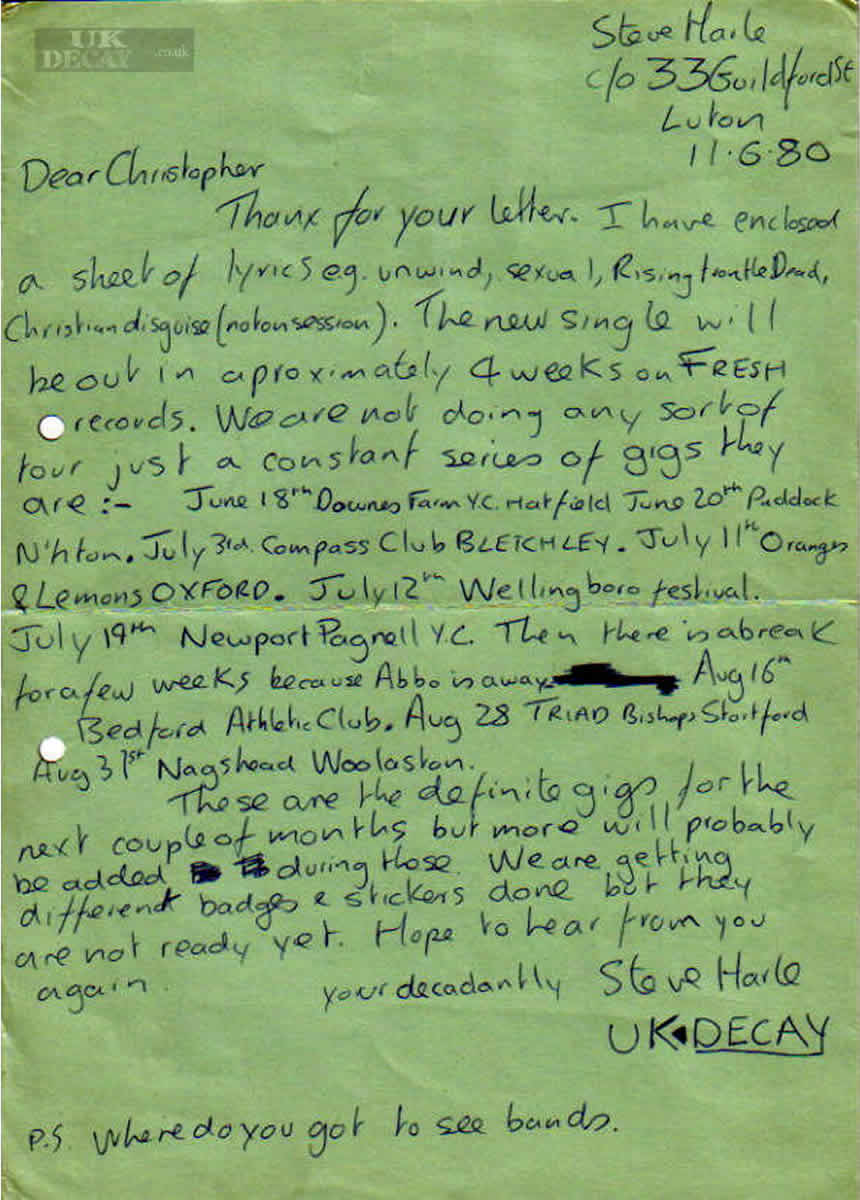 UK
DECAY .co.uk
Steve Harle
c/o 33 Guildford St
Luton
11.6.80
Dear Christopher
Thanx for your letter. I have enclosed
a sheet of lyrics eg. unwind, sexual, Rising from the Dead,
Christian disguise (not on session). The new single will
be out in aproximately 4 weeks on FRESH
records. We are not doing any sort of
tour just a constant series of gigs they
are :- June 18th Downes Farm Y.C. Hatfield June 20th Paddock
N'hton. July 3rd. Compass Club BLETCHLEY. July 11th Oranges
& Lemons OXFORD. July 12th Wellingboro festival.
July 19th Newport Pagnell Y.C. Then there is a break
for a few weeks because Abbo is away Aug 16th
Bedford Athletic Club. Aug 28 TRIAD Bishops Stortford
Aug 31st Nagshead Woolaston.
These are the definite gigs for the
next couple of months but more will probably
be added during those. We are getting
different badges & stickers done but they
are not ready yet. Hope to hear from you
again.
your decadantly Steve Harle
UK DECAY
P.S. Where do you got to see bands.